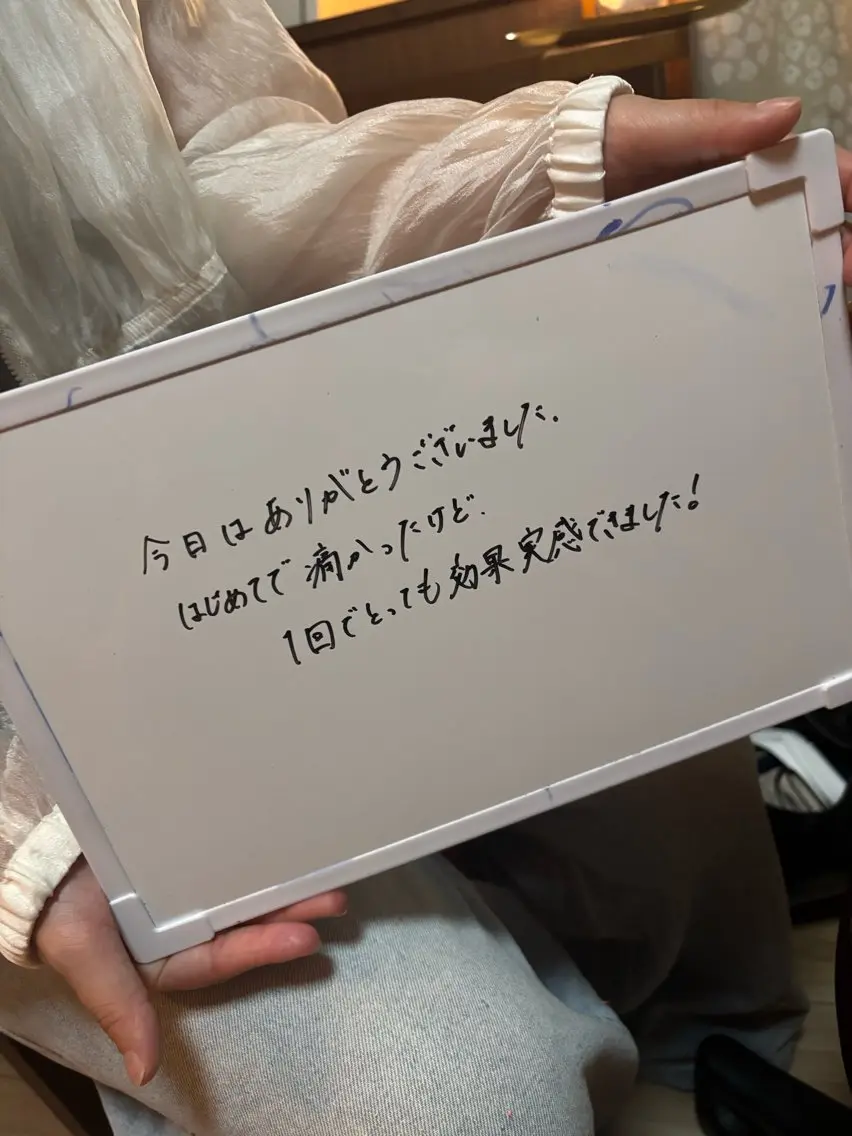 今日はありがとうございました.
はじめてで痛かったけど.
1回でとっても効果実感できました!